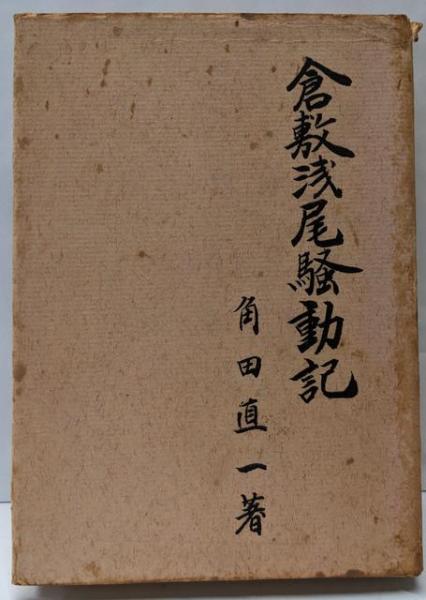 倉敷浅尾騒動記
角田直一著